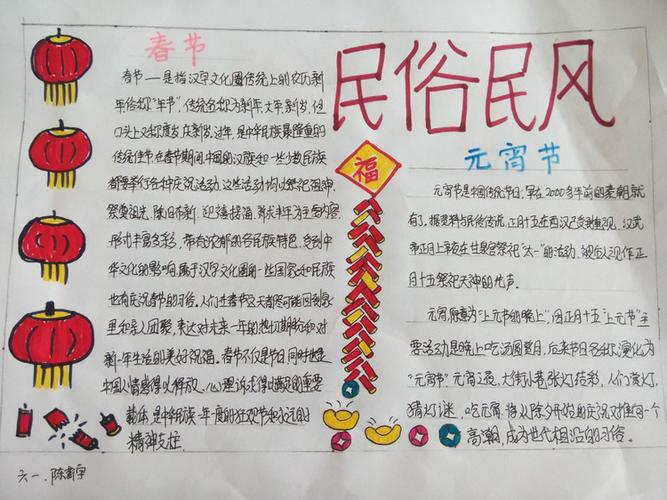 春节
春节——是指汉字文化圈传统上的农历新
年俗称"年节",传统名称为新年、大年、新岁,但
口头上又称度岁、庆新岁、过年,是中华民族最隆重的
传统佳节在春节期间中国的汉族和一些少数民族
都要举行各种庆祝活动。这些活动均以祭祀祖神、
祭奠祖先、除旧布新、迎禧接福、祈求丰年为主要内容
形式丰富多彩,带有浓郁的各民族特色。受到中
华文化的影响,属于汉字文化圈的一些国家和民族
也有庆祝春节的习俗。人们在春节这天都尽可能回到家
里和亲人团聚,表达对未来一年的热切期盼和对
新一年生活的美好祝福。春节不仅是节日,同时也是
中国人情感得以释放、心理诉求得以满足的重要
载体,是中华民族一年一度的狂欢节和永远的
精神支柱.
民俗民风
元宵节
福
元宵节是中国传统节日,早在2000多年前的秦朝就
有了。据资料与民俗传说,正月十五在西汉已受到重视,汉武
帝正月上辛夜在甘泉宫祭祀"太一"的活动,被后人视作正
月十五祭祀天神的先声。
元宵原意为"上元节的晚上",因正月十五"上元节"主
要活动是晚上吃汤圆赏月,后来节日名称演化为
"元宵节"元宵之夜,大街小巷张灯结彩,人们赏灯,
猜灯谜,吃元宵,将从除夕开始的庆祝又推向一个
高潮,成为世代相沿的习俗。
六一、陈